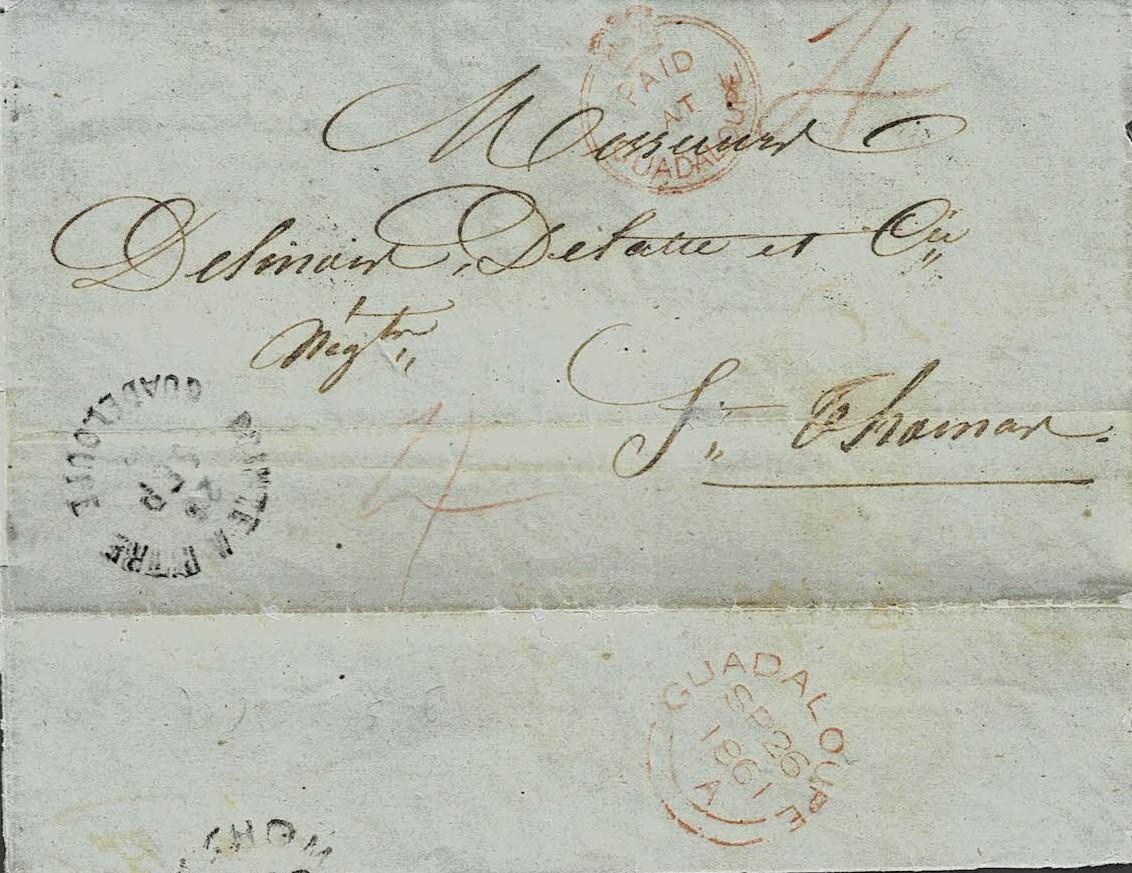 PAID
AT
GUADALOUPE
4
Messieurs
Delinois, Delatte et Cie
Négts
St Thomas.
POINTE A PITRE
GUADELOUPE
SEP
4
GUADALOUPE
SP 26
1861
A
THOM